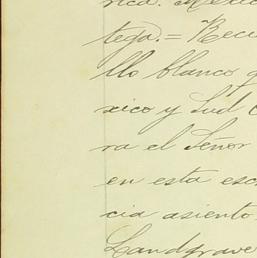 rica. Mexic
tega. = Reci
llo blanco q
xico y Sud
ra el Señor
en esta esc
cia asiento
Landgrave